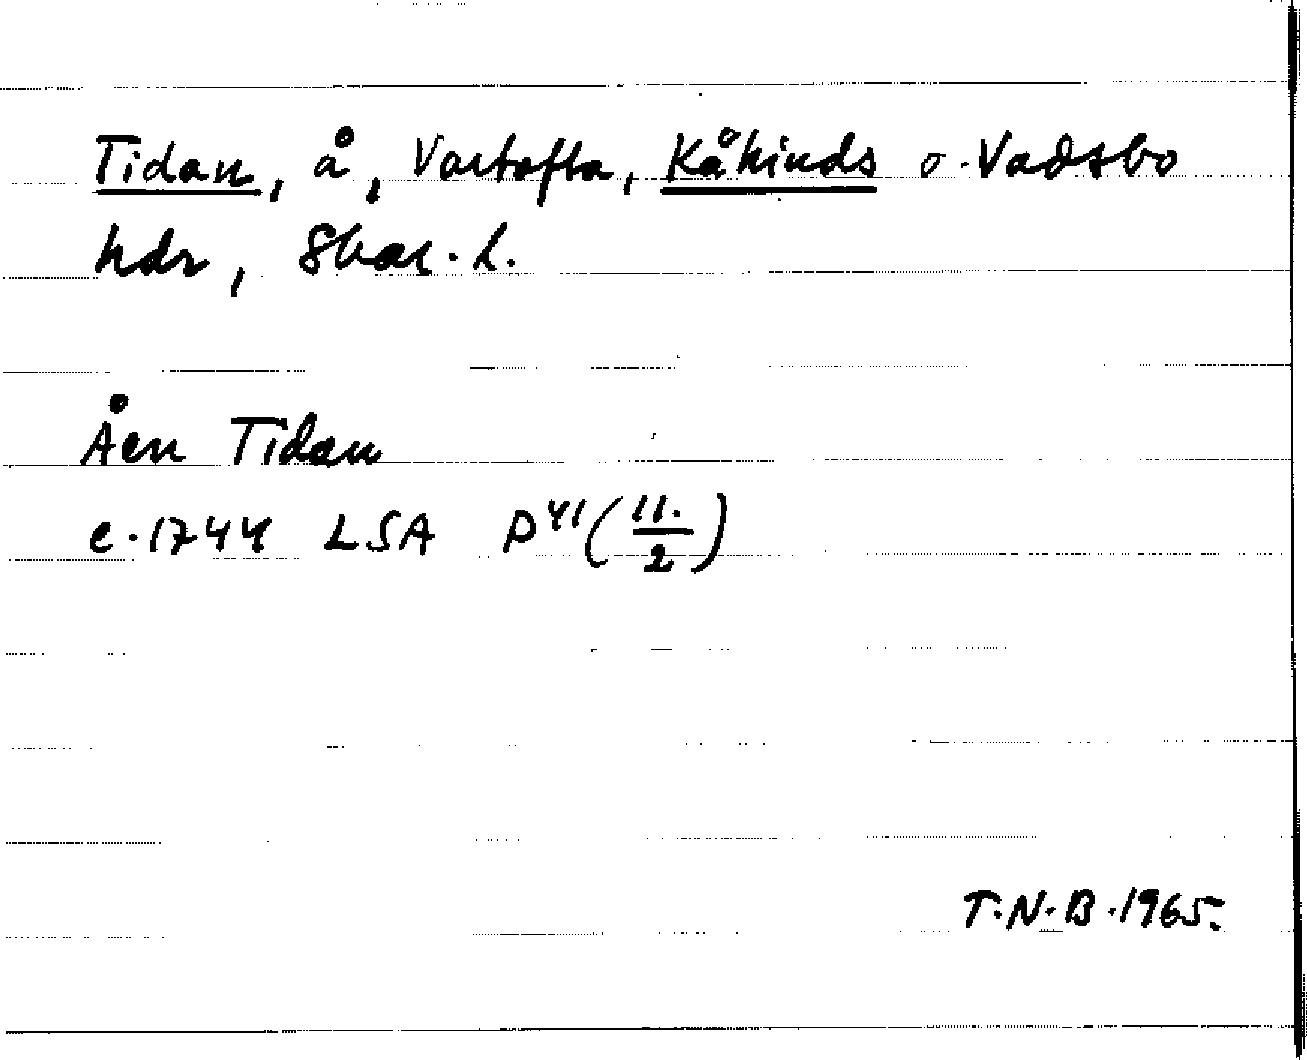 Tidan, å, Vartofta, Kåkinds o. Vadsbo
hdr, Skar. l.
Åen Tidan
c. 1744 LSA P41 (11./2)
T.N.B. 1965.